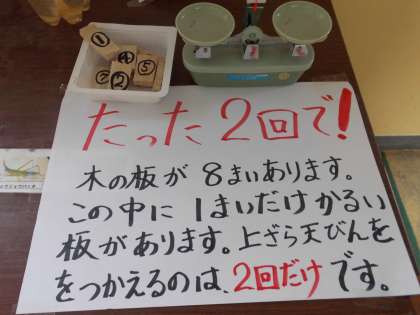 ①
④
⑦
②
⑤
たった2回で!
木の板が8まいあります。
この中に1まいだけかるい
板があります。上ざら天びんを
をつかえるのは、2回だけです。